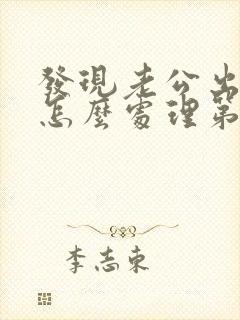 發現老公出
怎麼處理第
李志東